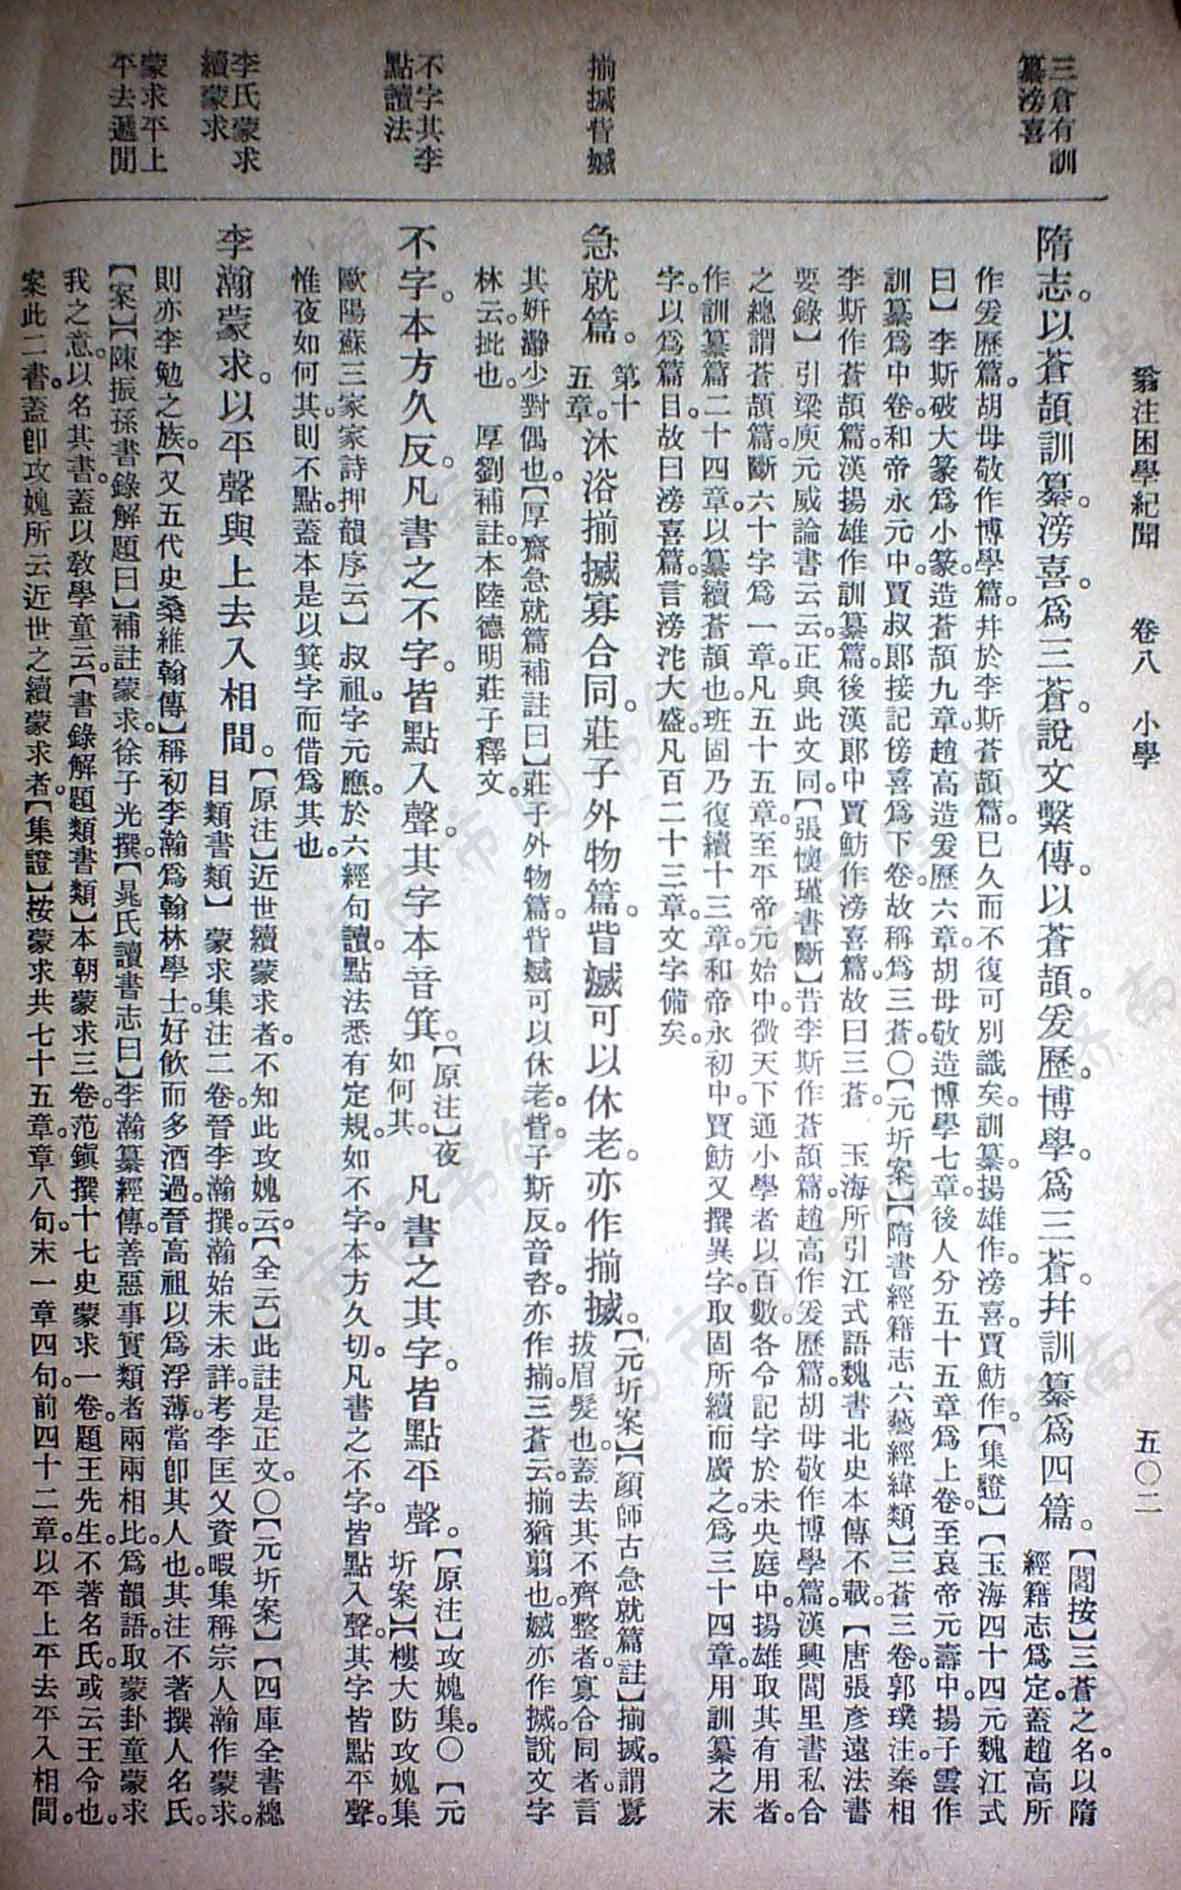 翁注困學紀聞　卷八　小學　五〇二
三倉有訓
纂滂喜
揃搣眥𡟬
不字其李
點讀法
李氏蒙求
續蒙求
蒙求平上
平去遞間
隋志。以蒼頡訓纂。滂喜。爲三蒼。說文繫傳。以蒼頡。爰歷。博學。爲三蒼。幷訓纂爲四篇。【閻按】三蒼之名。以隋
經籍志爲定。蓋趙高所
作爰歷篇。胡母敬作博學篇。幷於李斯蒼頡篇。已久而不復可別識矣。訓纂。揚雄作。滂喜。賈魴作。【集證】【玉海四十四元魏江式
曰】李斯破大篆爲小篆。造蒼頡九章。趙高造爰歷六章。胡母敬造博學七章。後人分五十五章爲上卷。至哀帝元壽中。揚子雲作
訓纂爲中卷。和帝永元中。賈叔郞接記傍喜爲下卷。故稱爲三蒼。〇【元圻案】【隋書經籍志六藝經緯類】三蒼三卷。郭璞注。秦相
李斯作蒼頡篇。漢揚雄作訓纂篇。後漢郞中賈魴作滂喜篇。故曰三蒼。　玉海所引江式語。魏書北史本傳不載。【唐張彥遠法書
要錄】引梁庾元威論書云云。正與此文同。【張懷瓘書斷】昔李斯作蒼頡篇。趙高作爰歷篇。胡母敬作博學篇。漢興。閭里書私合
之。總謂蒼頡篇。斷六十字爲一章。凡五十五章。至平帝元始中。徵天下通小學者以百數。各令記字於未央庭中。揚雄取其有用者。
作訓纂篇二十四章。以纂續蒼頡也。班固乃復續十三章。和帝永初中。賈魴又撰異字。取固所續而廣之。爲三十四章。用訓纂之末
字。以爲篇目。故曰滂喜篇。言滂沱大盛。凡百二十三章。文字備矣。
急就篇。第十
五章。沐浴揃搣寡合同。莊子外物篇。眥㓕可以休老。亦作揃搣。【元圻案】【顏師古急就篇註】揃搣。謂鬄
拔眉髮也。蓋去其不齊整者。寡合同者。言
其姸𩅞少對偶也。【厚齋急就篇補註曰】莊子外物篇。眥㓕可以休老。眥。子斯反。音咨。亦作揃。三蒼云。揃猶翦也。㓕亦作搣。說文字
林云。批也。　厚劉補註。本陸德明莊子釋文。
不字。本方久反。凡書之不字。皆點入聲。其字本音箕。【原注】夜
如何其。　凡書之其字。皆點平聲。【原注】攻媿集。〇【元
圻案】【樓大防攻媿集
歐陽蘇三家家詩押韻序云】叔祖字元應。於六經句讀。點法悉有定規。如不字。本方久切。凡書之不字。皆點入聲。其字皆點平聲。
惟夜如何其。則不點。蓋本是以箕字而借爲其也。
李瀚蒙求。以平聲與上去入相間。【原注】近世續蒙求者。不知此。攻媿云。【全云】此註是正文。〇【元圻案】【四庫全書總
目類書類】　蒙求集注二卷。晉李瀚撰。瀚始末未詳。考李匡乂資暇集。稱宗人瀚作蒙求。
則亦李勉之族。【又五代史桑維翰傳】稱初李瀚爲翰林學士。好飮而多酒過。晉高祖以爲浮薄。當卽其人也。其注不著撰人名氏。
【案】【陳振孫書錄解題曰】補註蒙求。徐子光撰。【晁氏讀書志曰】李瀚纂經傳。善惡事實類者。兩兩相比。爲韻語。取蒙卦童蒙求
我之意。以名其書。蓋以敎學童云。【書錄解題類書類】本朝蒙求三卷。范鎭撰。十七史蒙求一卷。題王先生。不著名氏。或云王令也。
案此二書。蓋卽攻媿所云近世之續蒙求者。【集證】按蒙求共七十五章。章八句。末一章四句。前四十二章。以平上平去平入相間。